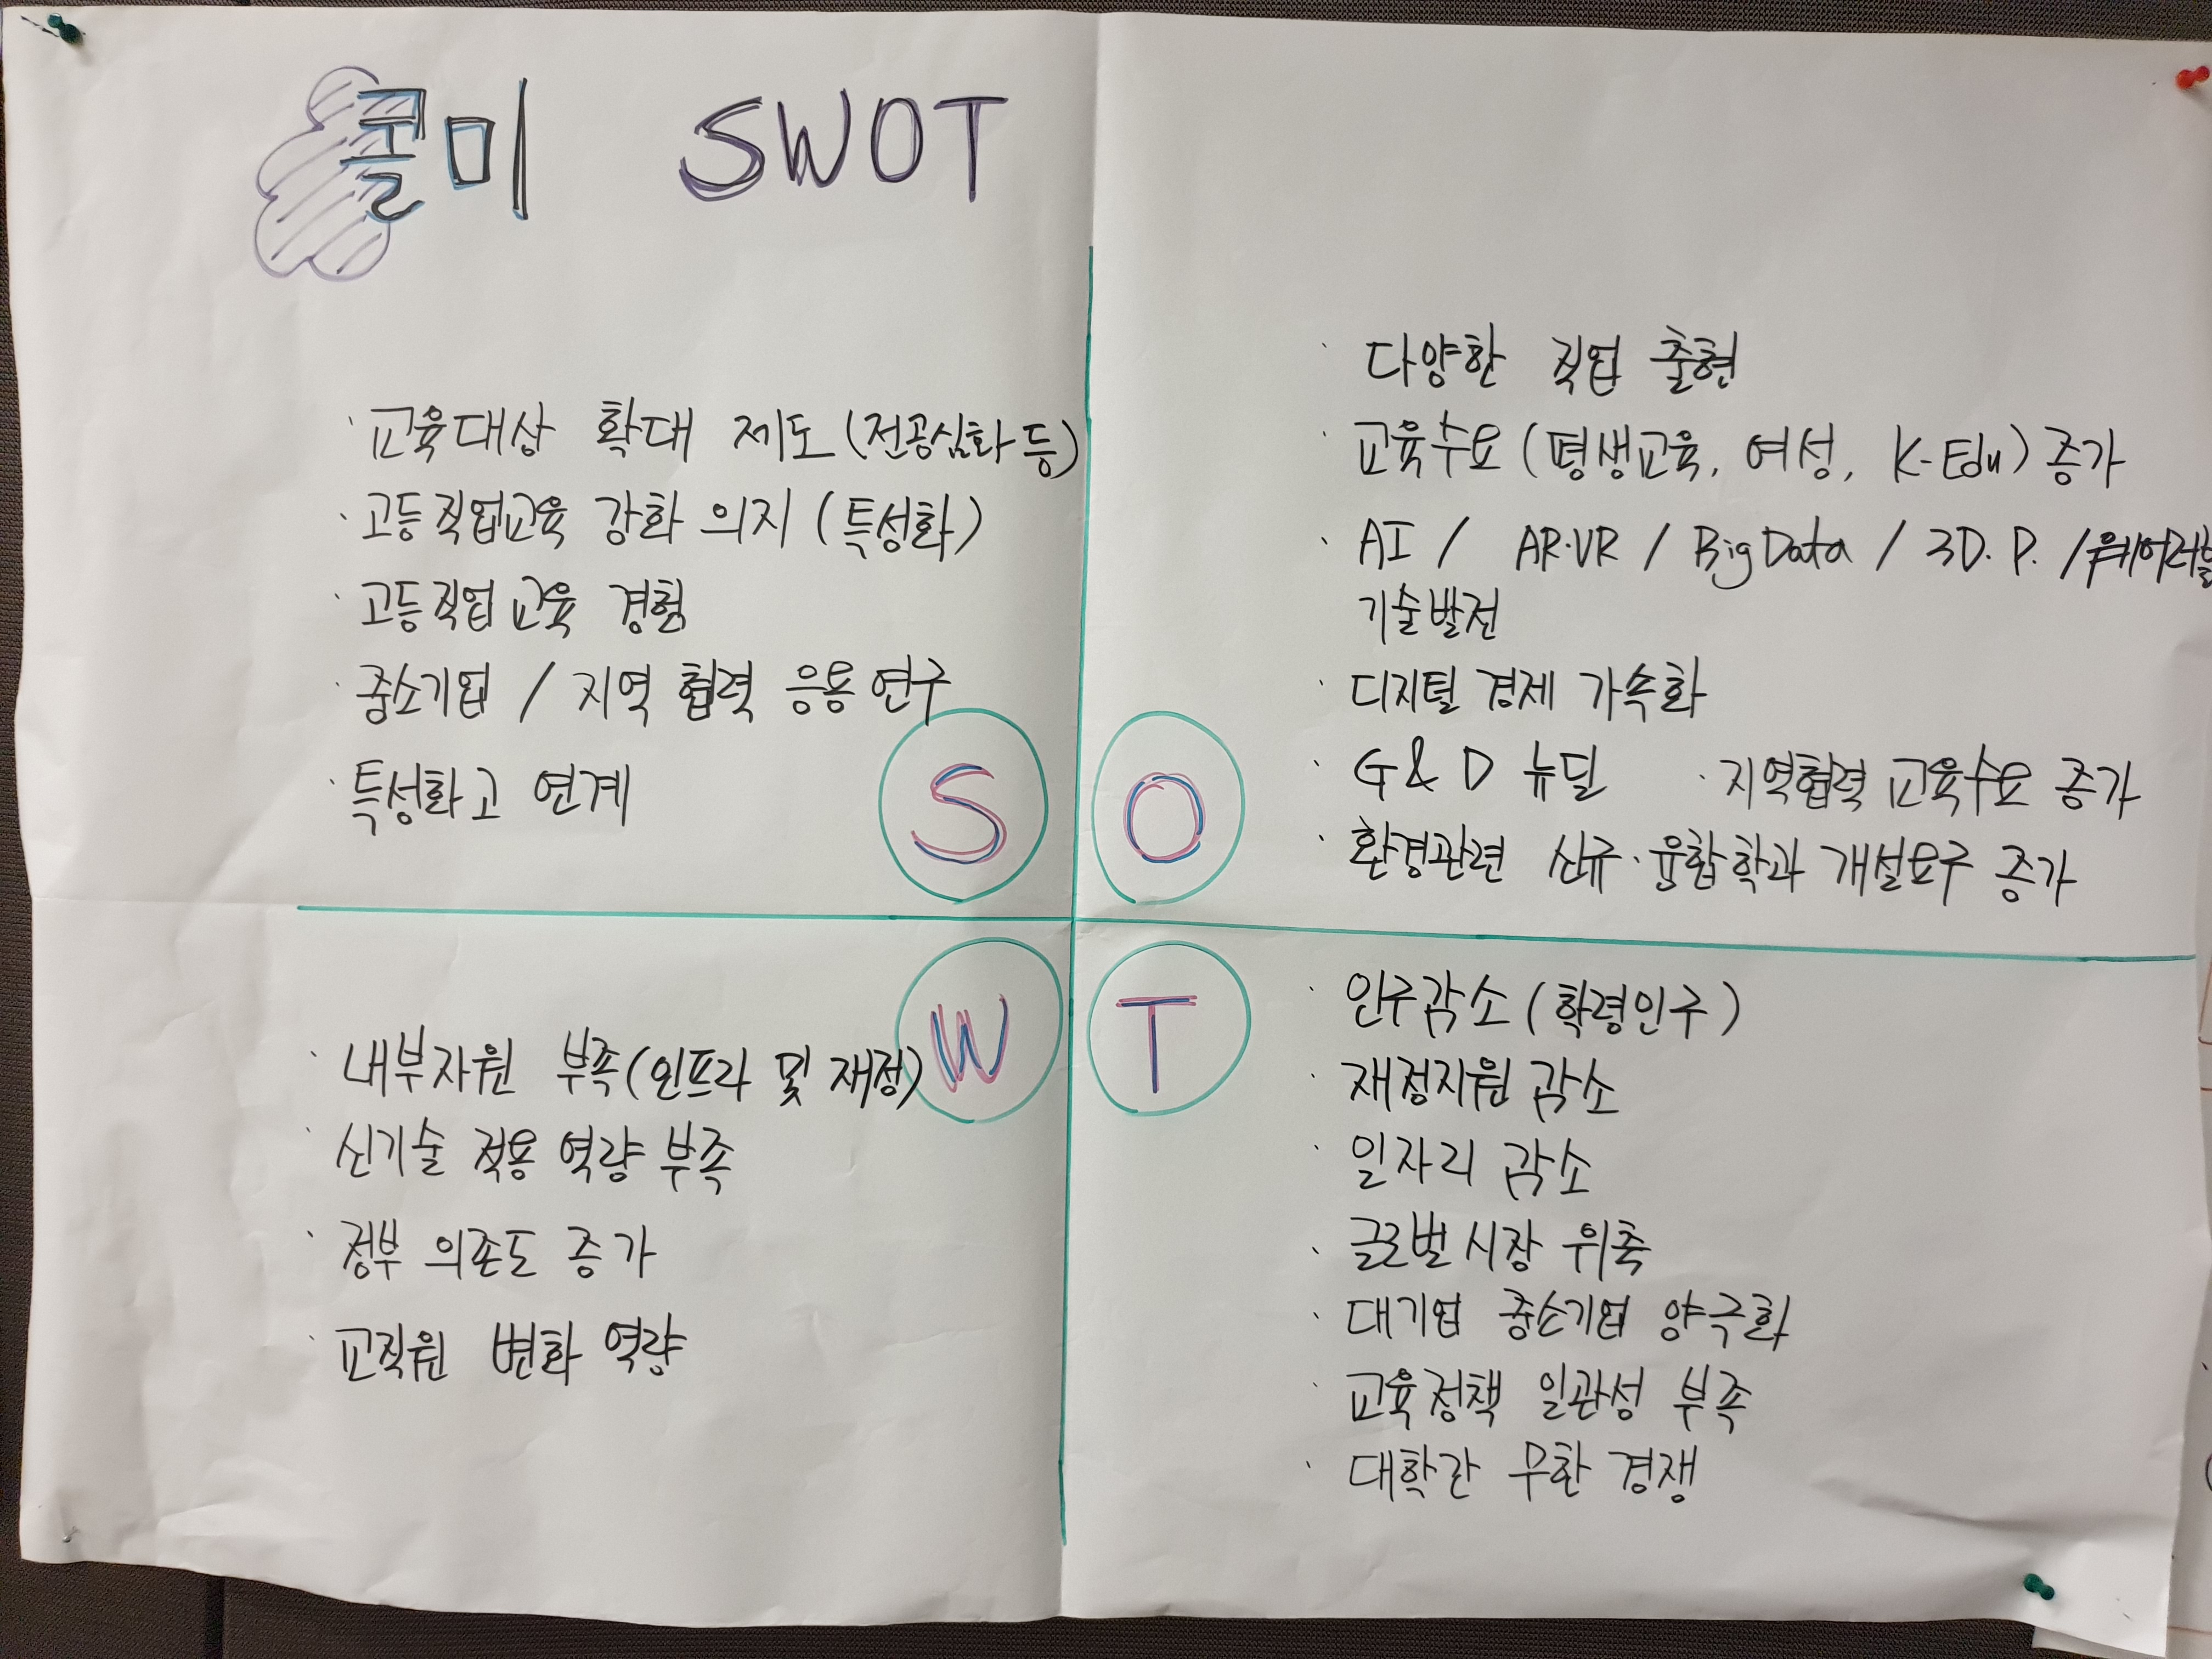 콜미 SWOT
· 교육대상 확대 제도 (전공심화 등)
· 고등직업교육 강화 의지 (특성화)
· 고등직업교육 경험
· 중소기업 / 지역 협력 응용 연구
· 특성화고 연계
S
· 다양한 직업 출현
· 교육수요 (평생교육, 여성, K-Edu) 증가
· AI / AR·VR / Big Data / 3D. P. / 웨어러블
기술발전
· 디지털 경제 가속화
· G & D 뉴딜 · 지역협력 교육수요 증가
· 환경관련 신규·융합학과 개설요구 증가
O
W
· 내부자원 부족 (인프라 및 재정)
· 신기술 적용 역량 부족
· 정부 의존도 증가
· 교직원 변화 역량
T
· 인구감소 (학령인구)
· 재정지원 감소
· 일자리 감소
· 글로벌시장 위축
· 대기업 중소기업 양극화
· 교육정책 일관성 부족
· 대학간 무한 경쟁